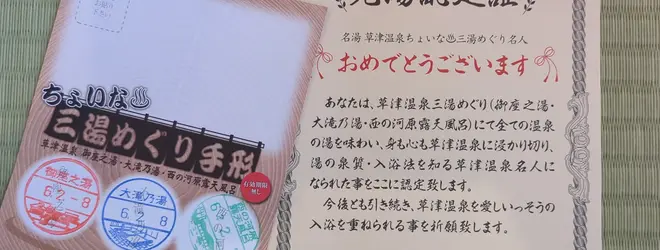 ちょいな♨
三湯めぐり手形
草津温泉 御座之湯・大滝乃湯・西の河原露天風呂
有効期限
無し
御座之湯
6.2.-8
大滝乃湯
6.2.8
名湯 草津温泉ちょいな♨三湯めぐり名人
おめでとうございます
あなたは、草津温泉三湯めぐり(御座之湯・
大滝乃湯・西の河原露天風呂)にて全ての温泉
の湯を味わい、身も心も草津温泉に浸かり切り、
湯の泉質・入浴法を知る草津温泉名人に
なられた事をここに認定致します。
今後とも引き続き、草津温泉を愛しいっそうの
入浴を重ねられる事を祈願致します。